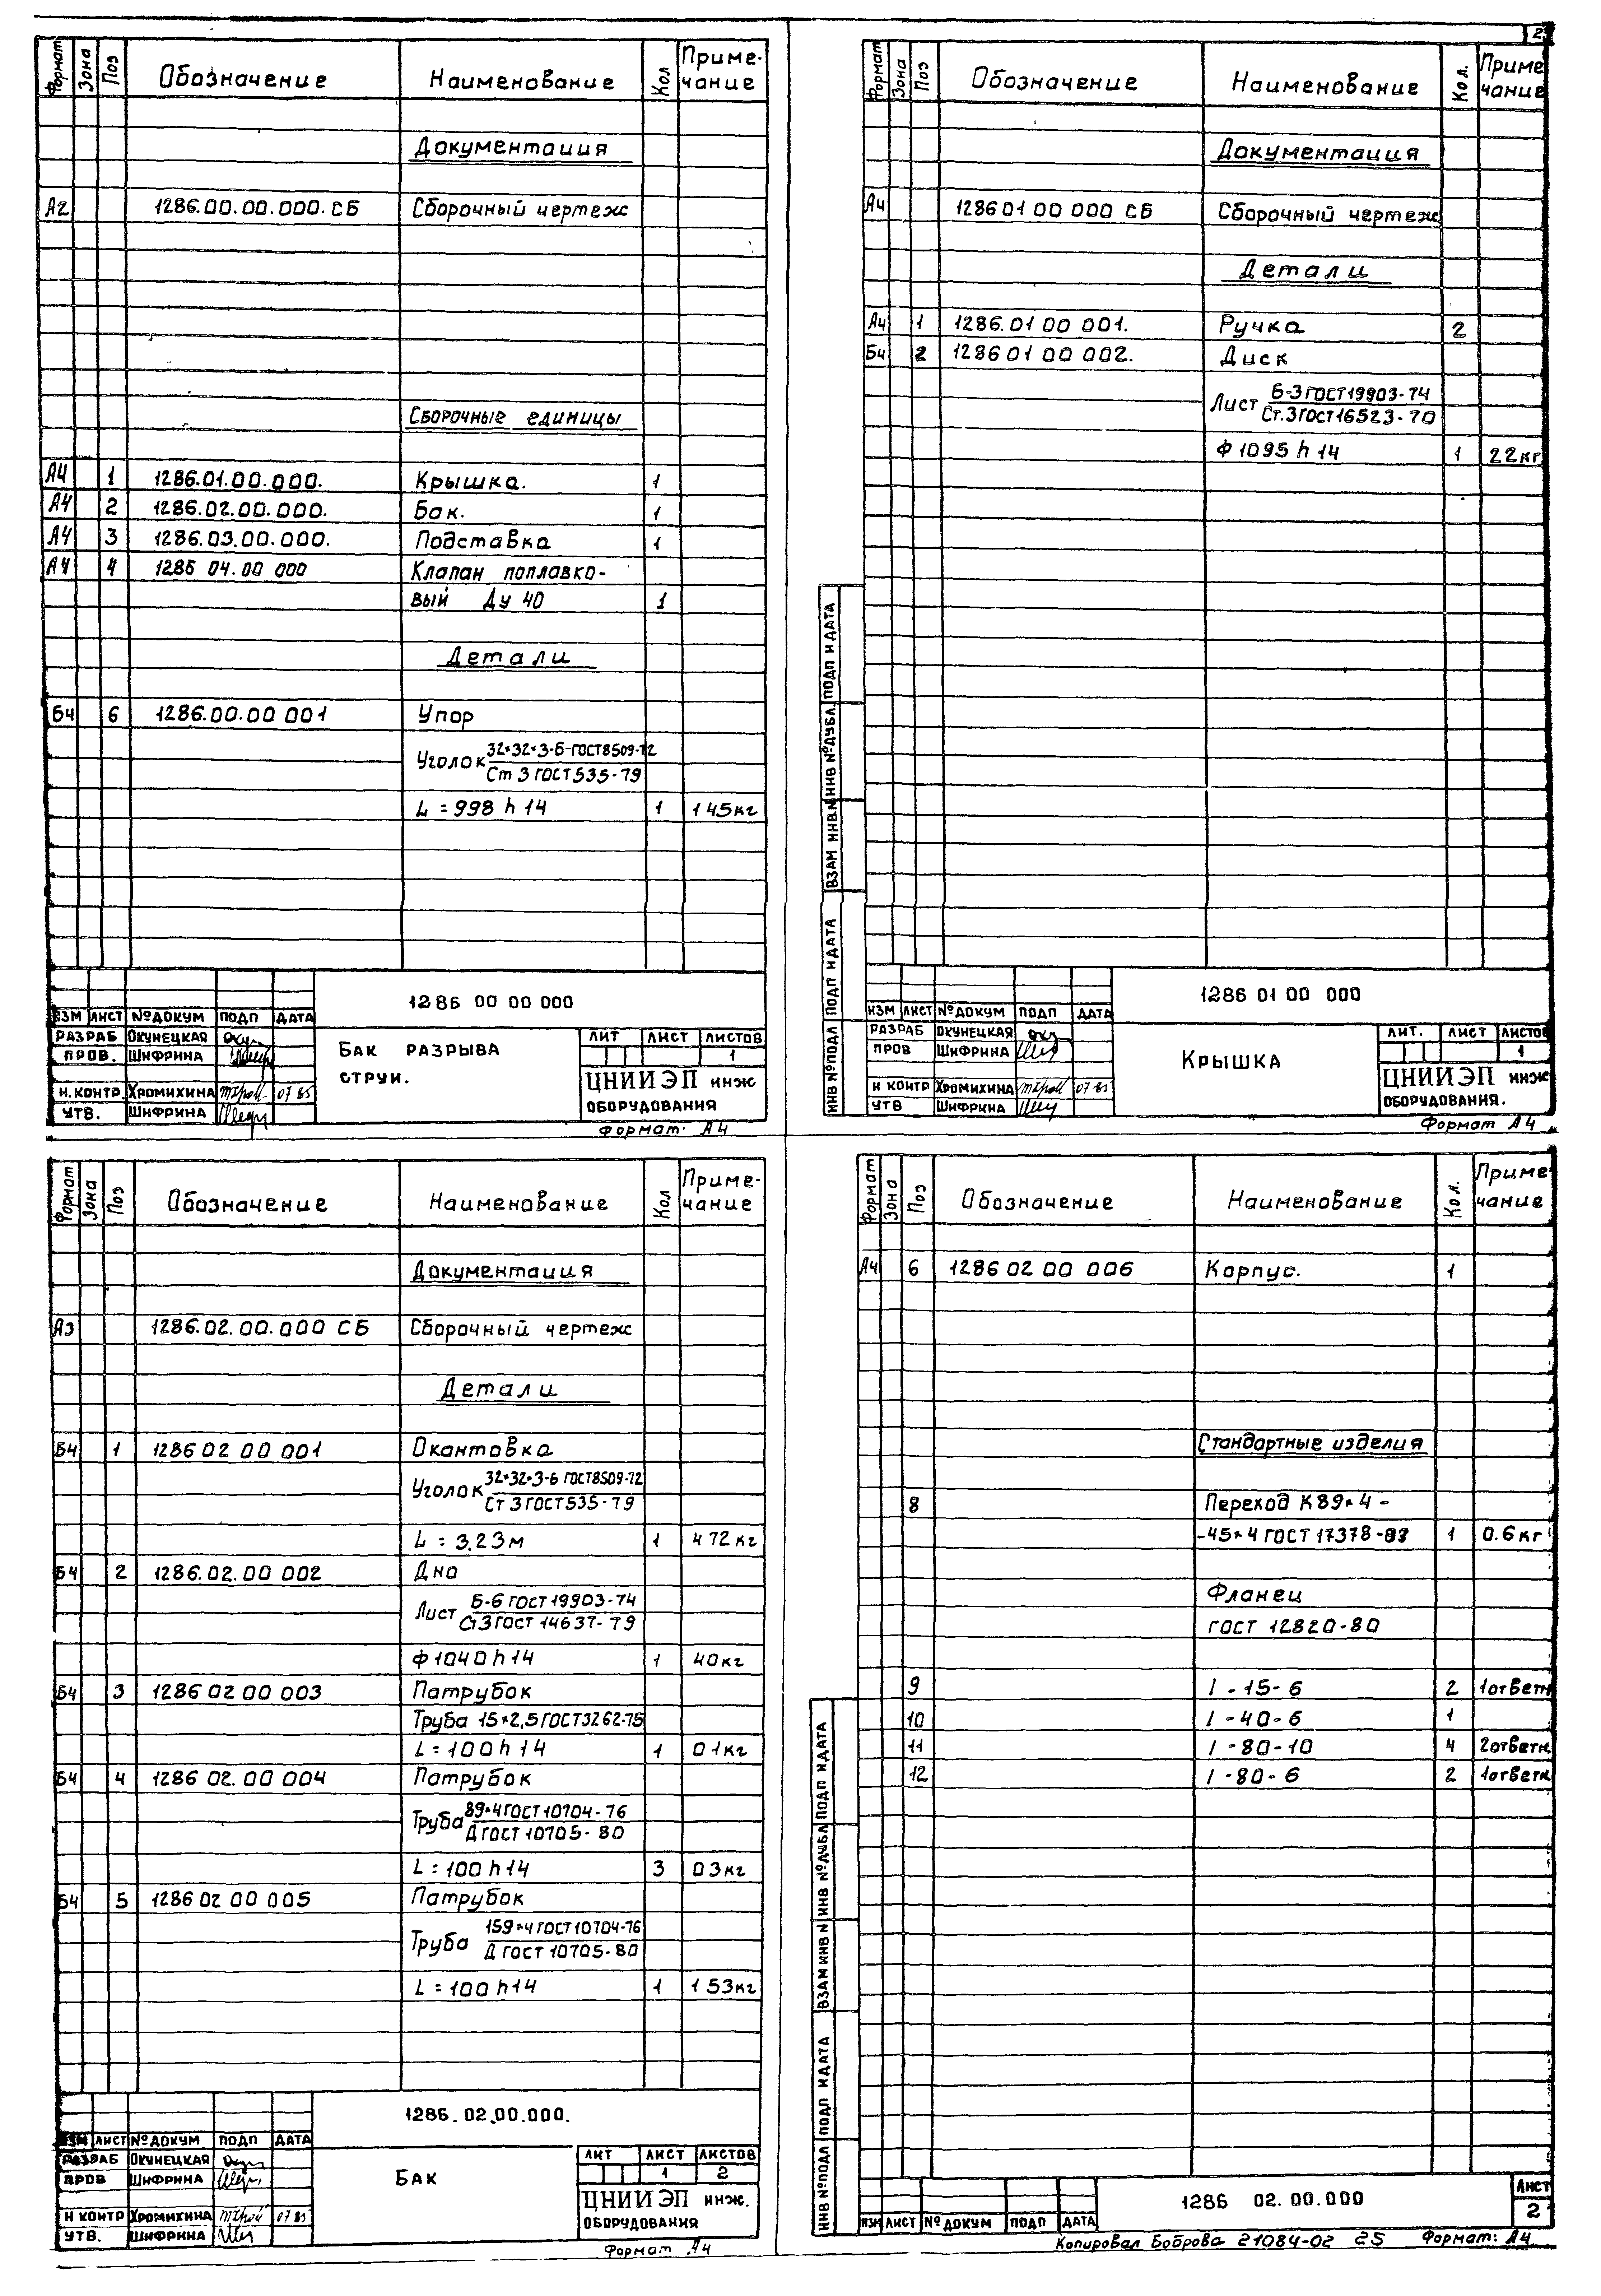 Формат Зона Поз Обозначение Наименование Кол Приме-
чание
Документация
А2 1286.00.00.000.СБ Сборочный чертеж
Сборочные единицы
А4 1 1286.01.00.000. Крышка. 1
А4 2 1286.02.00.000. Бак. 1
А4 3 1286.03.00.000. Подставка 1
А4 4 1286 04.00 000 Клапан поплавко-
вый Ду 40 1
Детали
Бч 6 1286.00.00 001 Упор
Уголок 32×32×3-Б-ГОСТ8509-72
Ст 3 ГОСТ535-79
L = 998 h 14 1 1 45кг
1286 00 00 000
ИЗМ ЛИСТ №ДОКУМ ПОДП ДАТА
РАЗРАБ ОКУНЕЦКАЯ
ПРОВ. ШИФРИНА
Н.КОНТР. ХРОМИХИНА 07 85
УТВ. ШИФРИНА
БАК РАЗРЫВА
СТРУИ.
ЛИТ ЛИСТ ЛИСТОВ
1
ЦНИИЭП ИНЖ
ОБОРУДОВАНИЯ
Формат. А4
2
Формат Зона Поз Обозначение Наименование Кол. Приме
чание
Документация
А4 1286 01 00 000 СБ Сборочный чертеж
Детали
А4 1 1286.01 00 001. Ручка 2
Бч 2 1286 01 00 002. Диск
Лист Б-3 ГОСТ19903-74
Ст.3ГОСТ16523-70
Ф1095 h 14 1 22кг
ИНВ №ПОДЛ ПОДП И ДАТА ВЗАМ ИНВ.№ ИНВ №ДУБЛ. ПОДП И ДАТА
1286 01 00 000
ИЗМ ЛИСТ №ДОКУМ ПОДП ДАТА
РАЗРАБ ОКУНЕЦКАЯ
ПРОВ ШИФРИНА
Н КОНТР ХРОМИХИНА 07 85
УТВ ШИФРИНА
КРЫШКА
ЛИТ. ЛИСТ ЛИСТОВ
1
ЦНИИЭП ИНЖ
ОБОРУДОВАНИЯ.
Формат А4
Формат Зона Поз Обозначение Наименование Кол Приме-
чание
Документация
А3 1286.02.00.000 СБ Сборочный чертеж
Детали
Бч 1 1286 02 00 001 Окантовка
Уголок 32×32×3-Б ГОСТ8509-72
Ст 3 ГОСТ535-79
L = 3.23м 1 4 72кг
Бч 2 1286.02.00 002 Дно
Лист Б-6 ГОСТ19903-74
Ст3ГОСТ 14637-79
Ф1040h14 1 40кг
Бч 3 1286 02 00 003 Патрубок
Труба 15×2,5ГОСТ3262-75
L = 100 h 14 1 0 1кг
Бч 4 1286 02. 00 004 Патрубок
Труба 89×4ГОСТ10704-76
Д ГОСТ 10705-80
L = 100 h14 3 0 3кг
Бч 5 1286 02 00 005 Патрубок
Труба 159×4 ГОСТ10704-76
Д ГОСТ 10705-80
L = 100 h14 1 1 53кг
1286.02.00.000.
ИЗМ ЛИСТ №ДОКУМ ПОДП ДАТА
РАЗРАБ ОКУНЕЦКАЯ
ПРОВ ШИФРИНА
Н КОНТР ХРОМИХИНА 07 85
УТВ. ШИФРИНА
БАК
ЛИТ ЛИСТ ЛИСТОВ
1 2
ЦНИИЭП ИНЖ.
ОБОРУДОВАНИЯ
Формат А4
Формат Зона Поз Обозначение Наименование Кол. Приме
чание
А4 6 1286 02 00 006 Корпус. 1
Стандартные изделия
8 Переход К 89×4 -
-45×4 ГОСТ 17378-83 1 0.6кг
Фланец
ГОСТ 12820-80
9 1 - 15 - 6 2 1ответн
10 1 - 40 - 6 1
11 1 - 80 - 10 4 2ответн.
12 1 - 80 - 6 2 1ответн
ИНВ №ПОДЛ ПОДП И ДАТА ВЗАМ ИНВ № ИНВ №ДУБЛ ПОДП И ДАТА
1286 02.00.000
ИЗМ ЛИСТ № ДОКУМ ПОДП ДАТА
ЛИСТ
2
Копировал Боброва 21084-02 25 Формат: А4